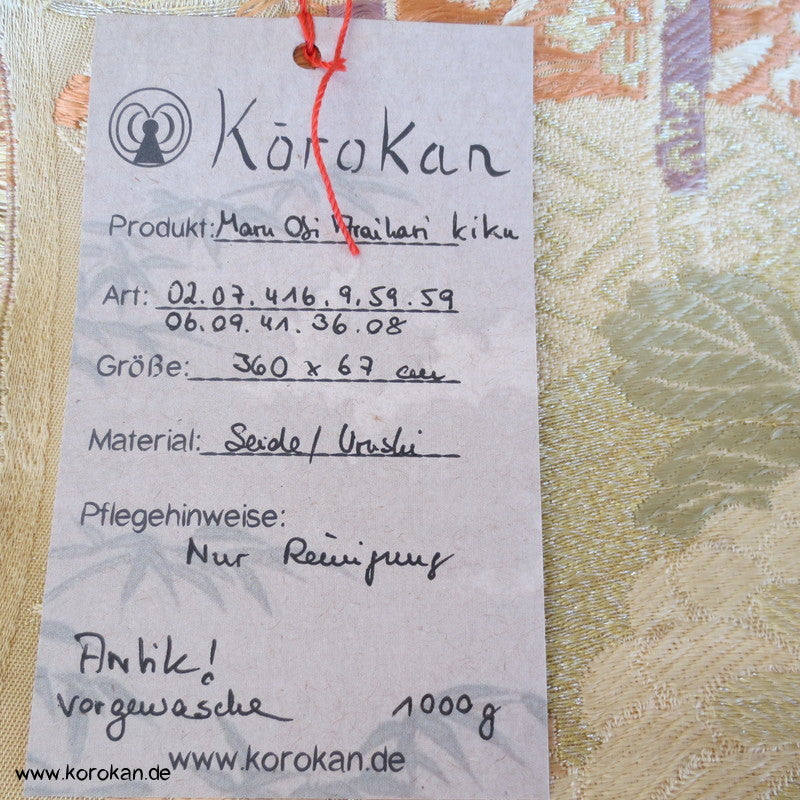 Kōrokan
Produkt: Maru Obi kiku
Art: 02.07.416.9.59.59
06.09.41.36.08
Größe: 360 x 67 cm
Material: Seide / Urushi
Pflegehinweise:
Nur Reinigung
Antik!
vorgewasche 1000g
www.korokan.de
www.korokan.de